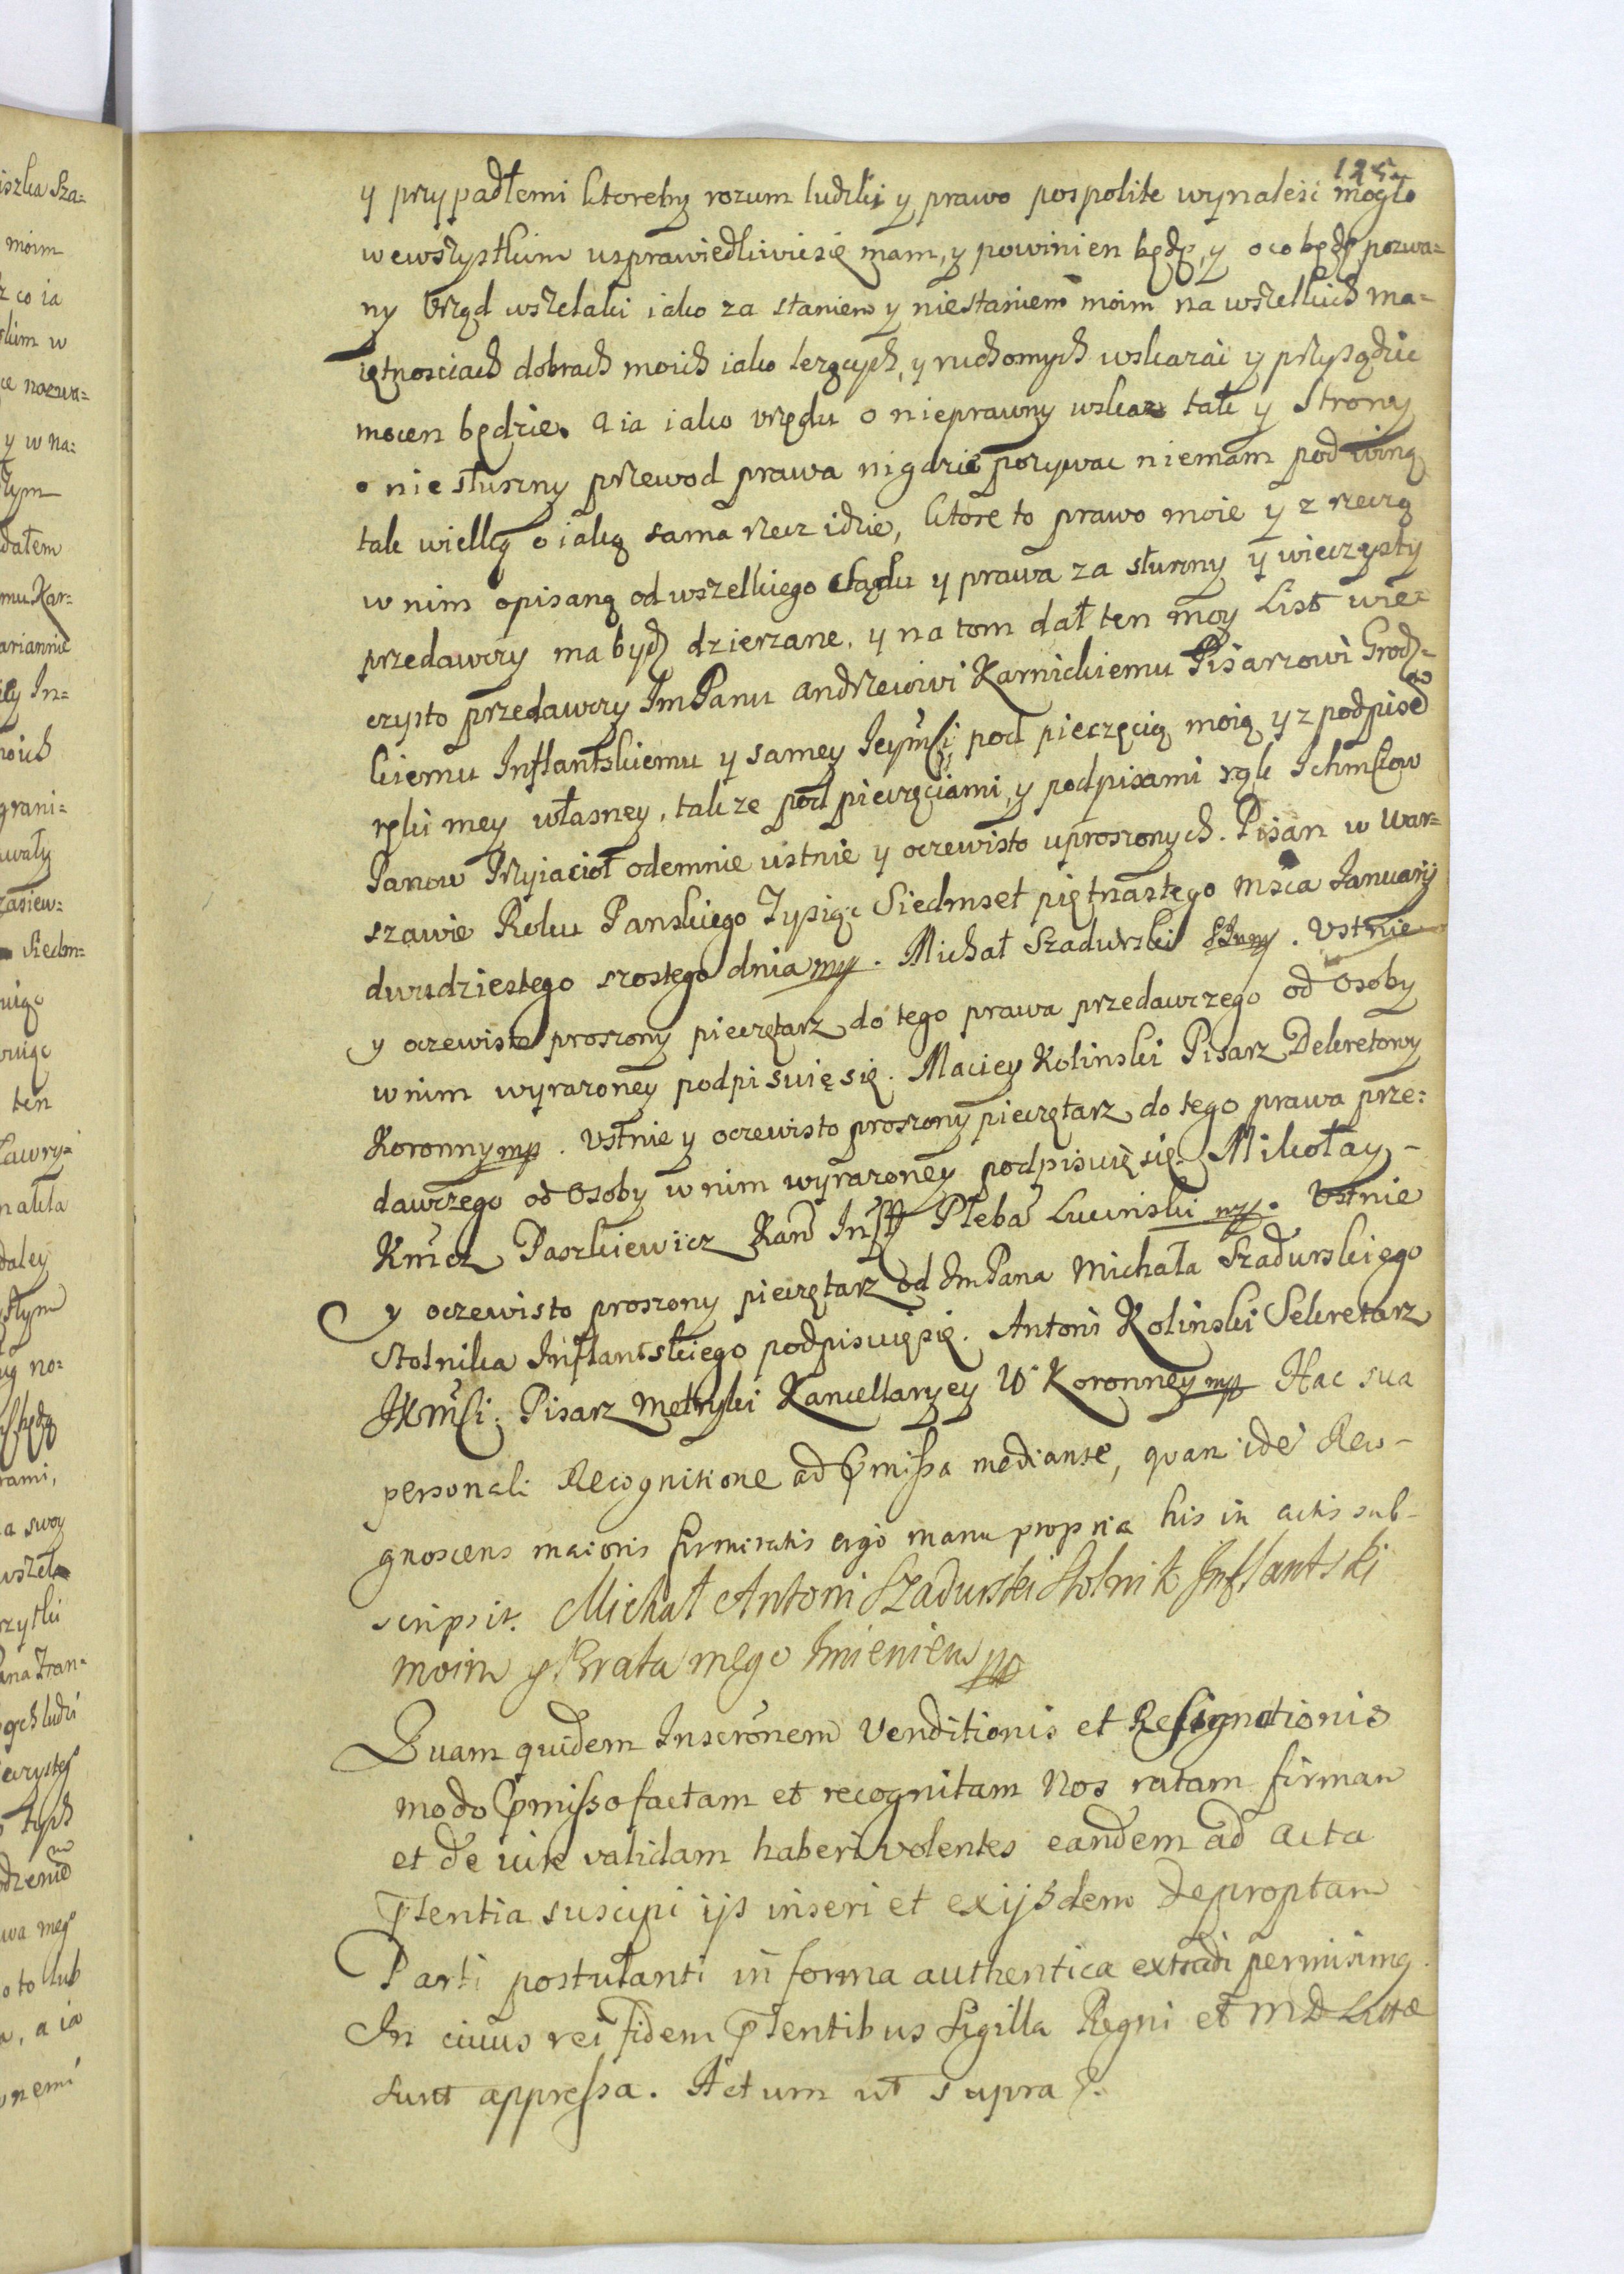 125
y przypadłemi ktoreby rozum ludzki y prawo pospolite wynaleść mogło
wewszystkim usprawiedliwić się mam, y powinien będę, y o co będę pozwa=
ny Vrząd wszelaki iako za staniem y niestaniem moim na wszelkich ma=
iętnosciach dobrach moich iako leżących, y ruchomych wskazać y przysądzić
mocen będzie. A ia iako vrzędu o nieprawny wskaz tak y Strony
o niesłuszny przewod prawa nigdzie pozywac niemam pod winą
tak wielką o iaką sama rzecz idzie, ktore to prawo moie y z rzeczą
w nim opisaną od wszelkiego sądu y prawa za słuszny y wieczysty
przedawczy ma bydź dzierzane, y na tom dał ten moy List wie=
czysto przedawczy Jm Panu Andrzeiowi Karnickiemu Pisarzowi Grodz=
kiemu Inflantskiemu y samey Jeymści, pod pieczęcią moią y z podpisem
ręki mey własney, także pod pieczęciami, y podpisami rąk Ichmściow
Panow Przyiacioł odemnie ustnie y oczewisto uproszonych. Pisan w War=
szawie Roku Panskiego Tysiąc Siedmset piętnastego msca Januarij
dwudziestego szostego dnia mp. Michał Szadurski SInmp. Vstnie
y oczewisto proszony pieczętarz do tego prawa przedawczego od Osoby
w nim wyrazoney podpisuię się. Maciey Kolinski Pisarz Dekretowy
Koronny mp. Vstnie y oczewisto proszony pieczętarz do tego prawa prze=
dawczego od Osoby w nim wyrazoney podpisuię się. Mikołay -
Kmcz Paszkiewicz Kan Infl Pleba Lucinski mp. Vstnie
y oczewisto proszony pieczętarz od Jm Pana Michała Szadurskiego
Stolnika Inflantskiego podpisuię się. Antoni Kolinski Sekretarz
JKMści. Pisarz Metryki Kancellaryey W Koronney mp Hac sua
personali Recognitione ad pmissa mediante, quam idē Reco-
gnoscens maioris firmitatis ergo manu propria his in actis sub-
scripsit. Michał Antoni Szadurski Stolnik Inflantski
moim y Brata mego Imieniem mp
Quam quidem Inscronem Venditionis et Resignationis
modo pmisso factam et recognitam Nos ratam firmam
et de iure validam haberi volentes eandem ad acta
pſentia suscipi ijs inseri et ex ijsdem depromptam
Parti postulanti in forma authentica extradi permisimq
In cuius rei fidem pſentibus Sigilla Regni et M D Litt̄æ
sunt appressa. Actum ut supra